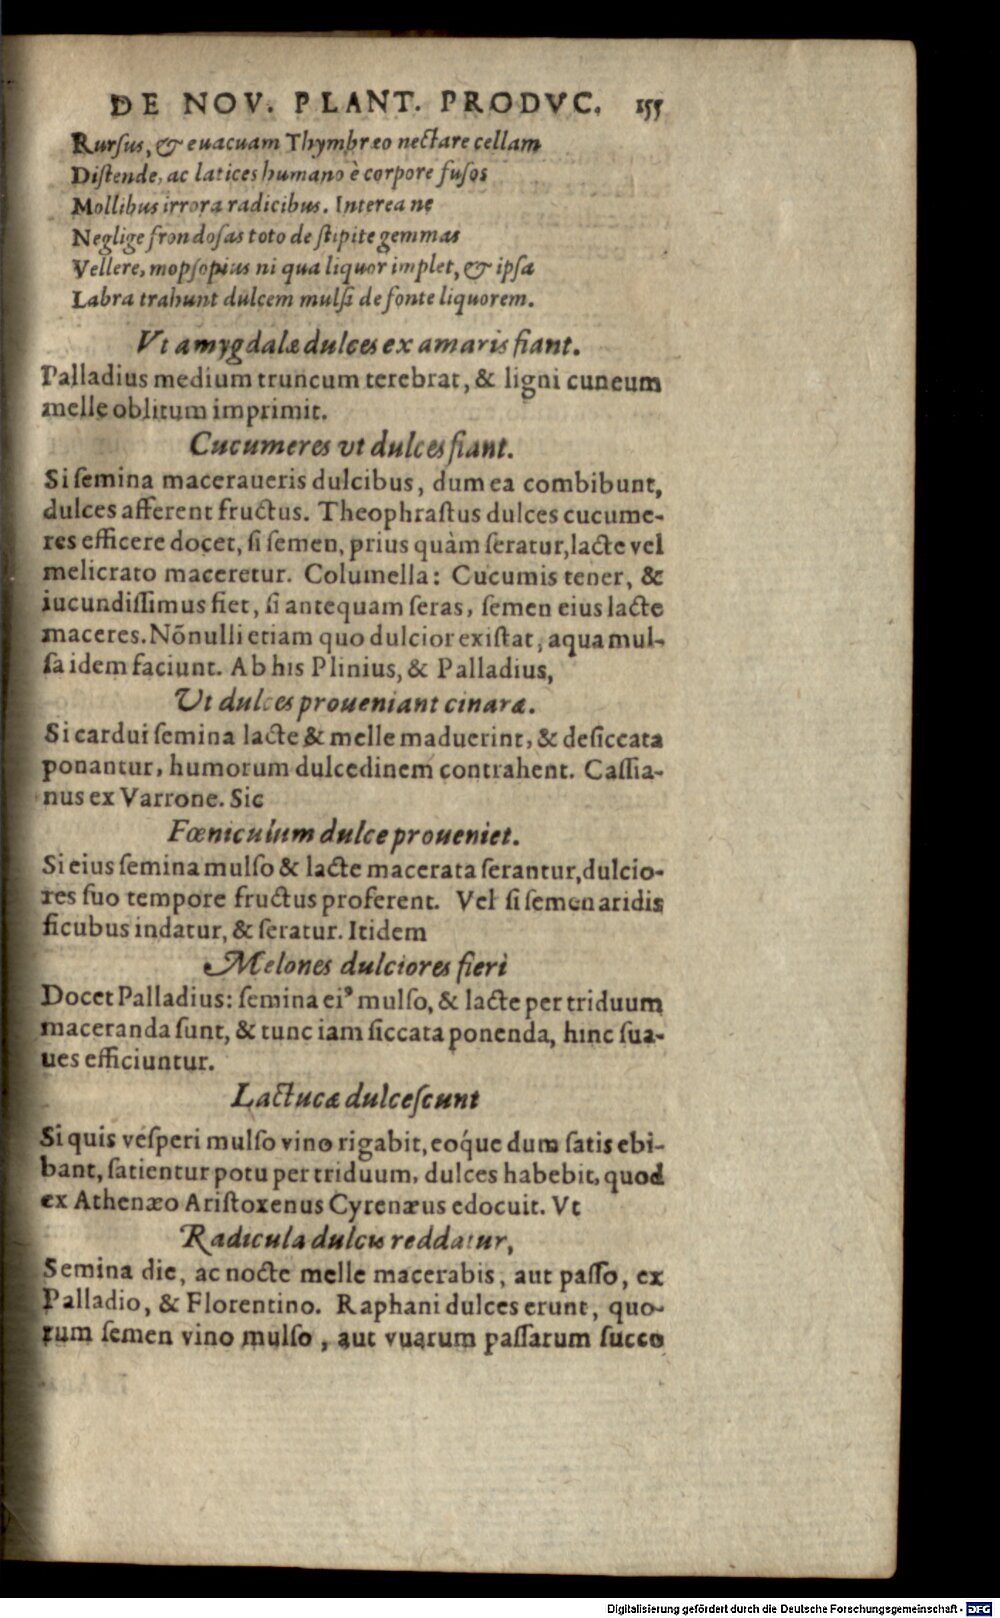 DE NOV. PLANT. PRODVC. 155
Rurſus, & euacuam Thymbræo nectare cellam
Diſtende, ac latices humano è corpore fuſos
Mollibus irrora radicibus. Interea ne
Neglige frondoſas toto de ſtipite gemmas
Vellere, mopſopius ni qua liquor implet, & ipſa
Labra trahunt dulcem mulſi de fonte liquorem.
Vt amygdalæ dulces ex amaris fiant.
Palladius medium truncum terebrat, & ligni cuneum
melle oblitum imprimit.
Cucumeres vt dulces fiant.
Si ſemina maceraueris dulcibus, dum ea combibunt,
dulces afferent fructus. Theophraſtus dulces cucume-
res efficere docet, ſi ſemen, prius quàm ſeratur, lacte vel
melicrato maceretur. Columella: Cucumis tener, &
iucundiſſimus fiet, ſi antequam ſeras, ſemen eius lacte
maceres. Nõnulli etiam quo dulcior exiſtat, aqua mul-
ſa idem faciunt. Ab his Plinius, & Palladius,
Ut dulces proueniant cinaræ.
Si cardui ſemina lacte & melle maduerint, & deſiccata
ponantur, humorum dulcedinem contrahent. Caſſia-
nus ex Varrone. Sic
Fœniculum dulce proueniet.
Si eius ſemina mulſo & lacte macerata ſerantur, dulcio-
res ſuo tempore fructus proferent. Vel ſi ſemen aridis
ficubus indatur, & ſeratur. Itidem
Melones dulciores fieri
Docet Palladius: ſemina ei⁹ mulſo, & lacte per triduum
maceranda ſunt, & tunc iam ſiccata ponenda, hinc ſua-
ues efficiuntur.
Lactucæ dulceſcunt
Si quis veſperi mulſo vino rigabit, eoq́ue dum ſatis ebi-
bant, ſatientur potu per triduum, dulces habebit, quod
ex Athenæo Ariſtoxenus Cyrenæus edocuit. Vt
Radicula dulcis reddatur,
Semina die, ac nocte melle macerabis, aut paſſo, ex
Palladio, & Florentino. Raphani dulces erunt, quo-
rum ſemen vino mulſo, aut vuarum paſſarum ſucco
Digitalisierung gefördert durch die Deutsche Forschungsgemeinschaft - DFG